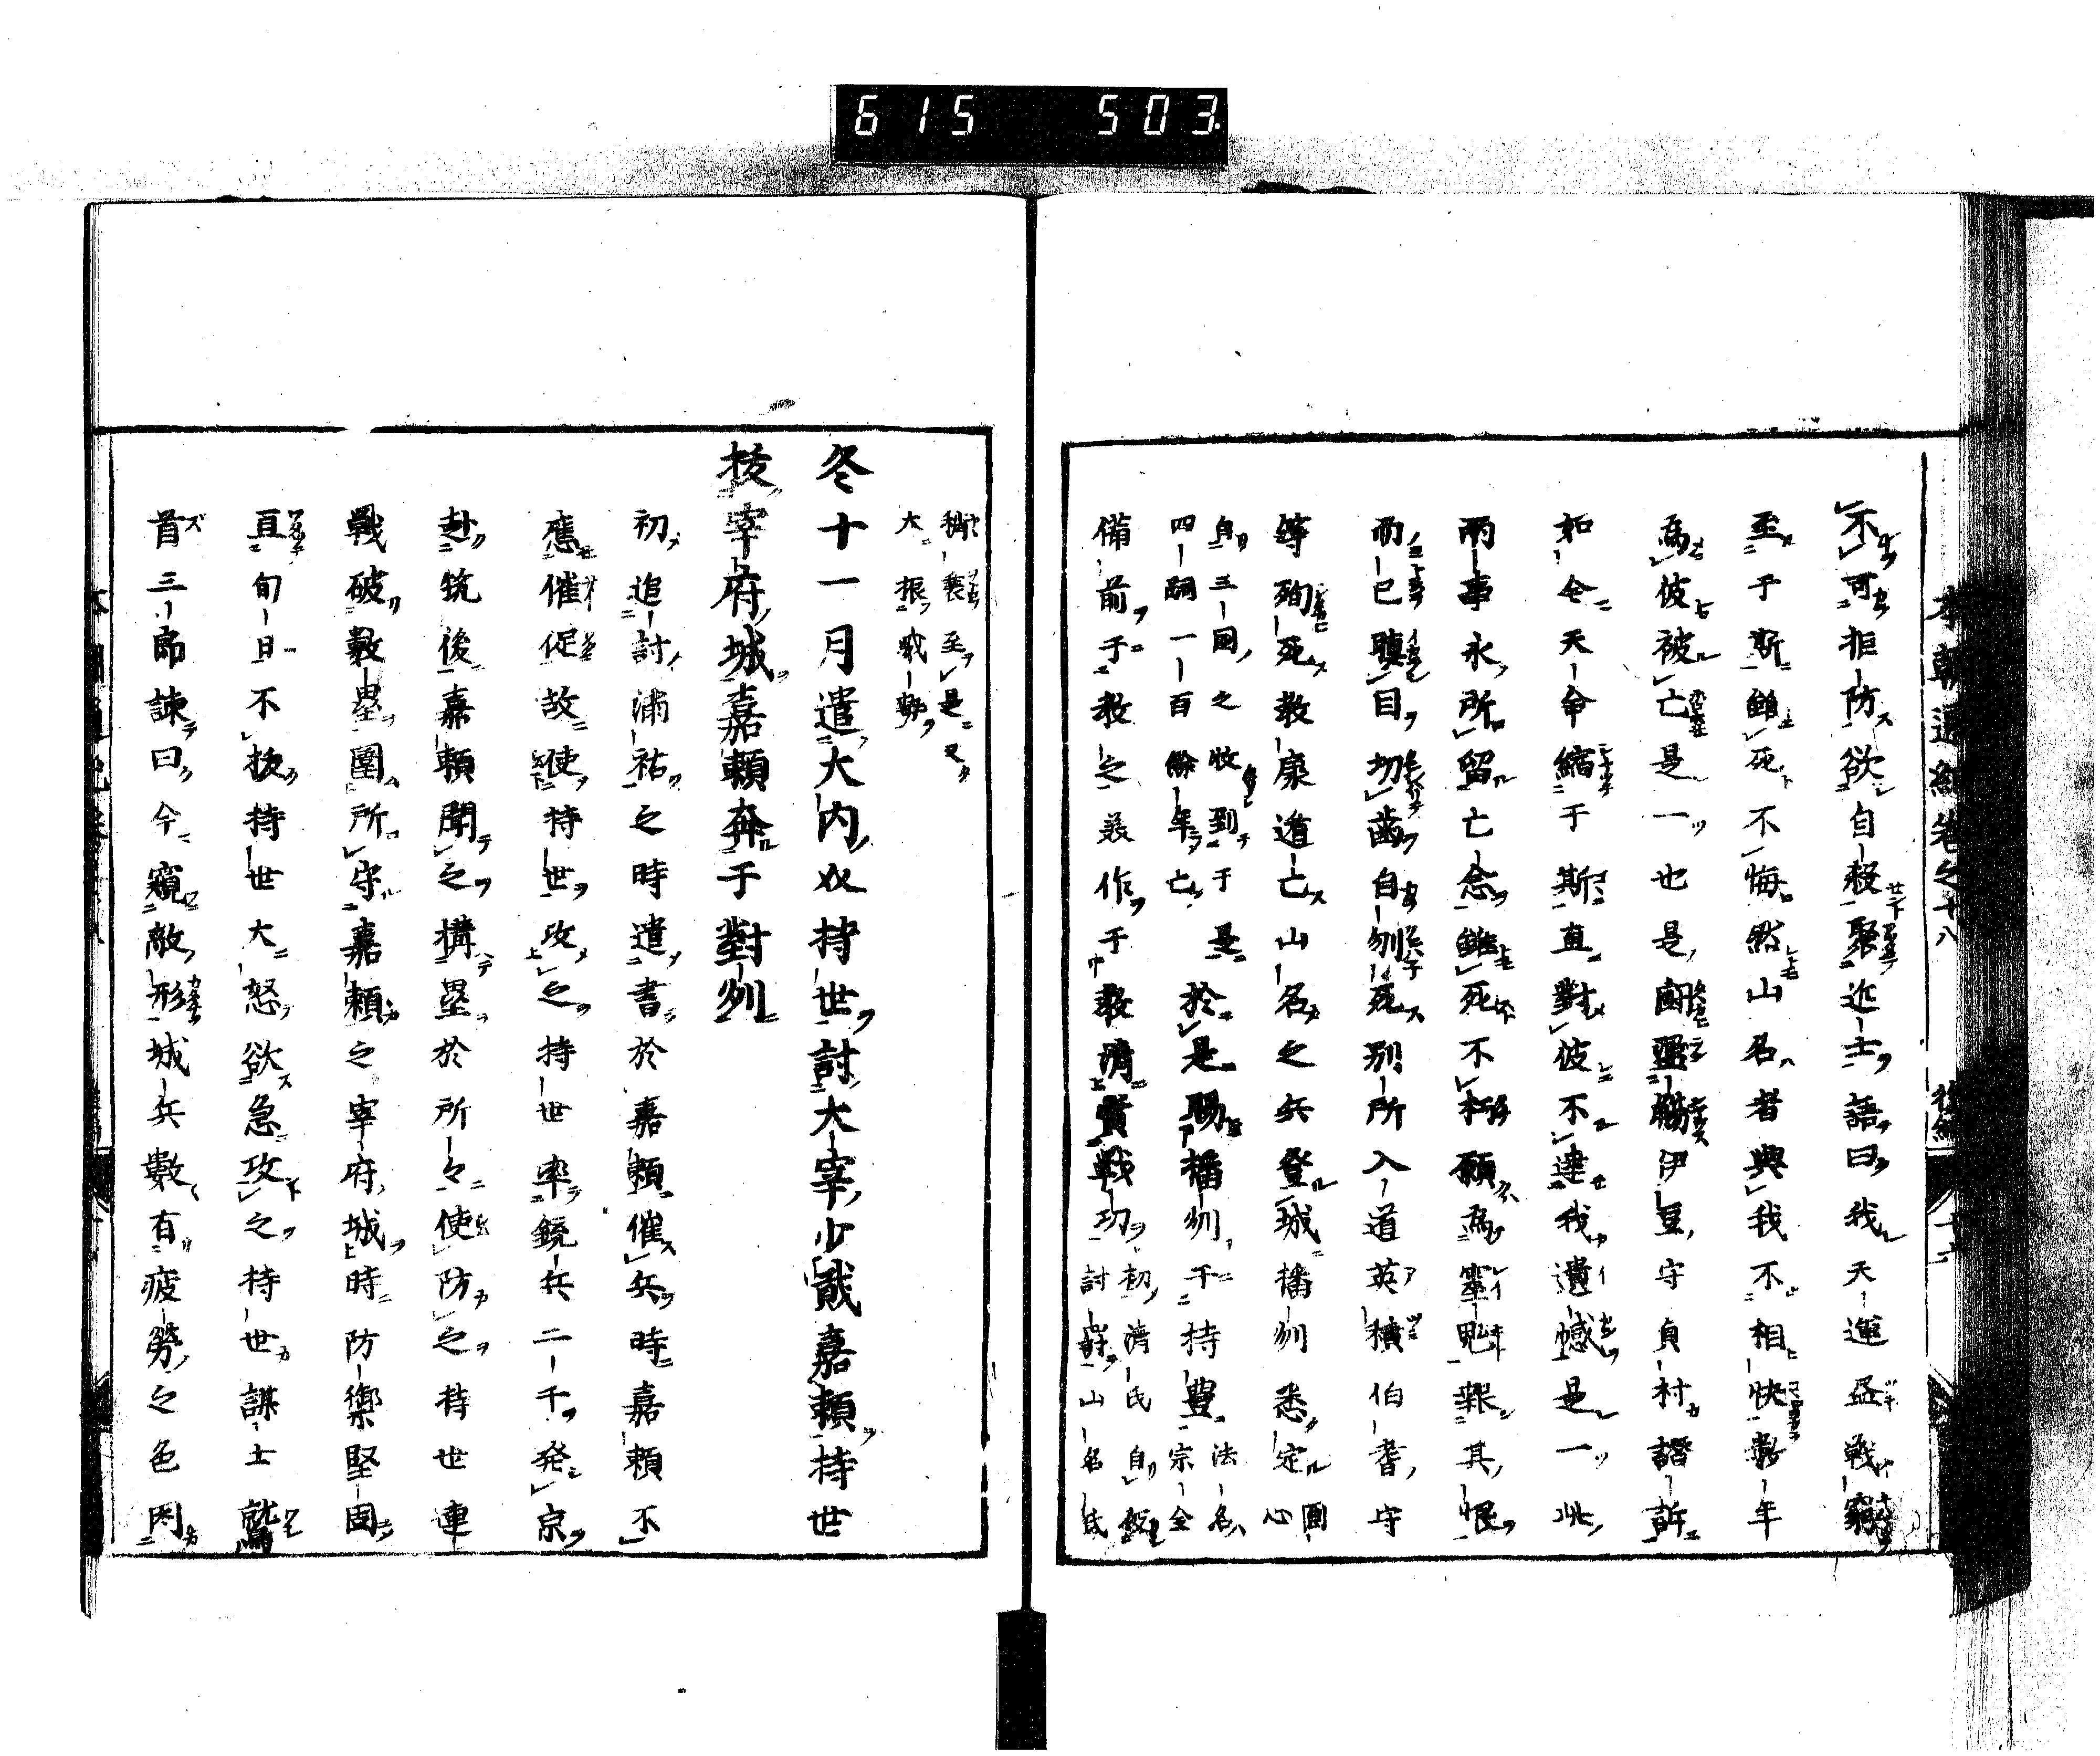 615 503
本朝通紀卷之十八 後編 十二
不可拒防欲自殺聚近士語曰我天運盡戰窮
至于斯雖死不悔然山名者與我不相快數年
為彼被亡是一也是凶盟觴伊豆守貞村譖訴
如今天命縮于斯直對彼不達我遺憾是一此
兩事永所留亡念雖死不朽願為靈鬼報其恨
而已瞋目切齒自刎死別所入道英積伯耆守
等殉死教康逃亡山名之兵登城播州悉定
圓心
自三國之收到于是
四嗣一百餘年亡
於是賜播州于持豐
法名宗全
備前于教之美作于教清賞戰功
初滿氏自叛
討山名氏
稍衰至是又
大振戰勢
冬十一月遣大内教持世討大宰少貳嘉賴持世
拔宰府城嘉賴奔于對州
初追討滿祐之時遣書於嘉賴催兵時嘉賴不
應催促故使持世攻之持世率銳兵二千發京
赴筑後嘉賴聞之搆壘於所々使防之持世連
戰破數壘圍所守嘉賴之宰府城時防禦堅固
亘旬日不拔持世大怒欲急攻之持世謀士鷲
首三郎諫曰今窺敵形城兵數有疲勞之色因